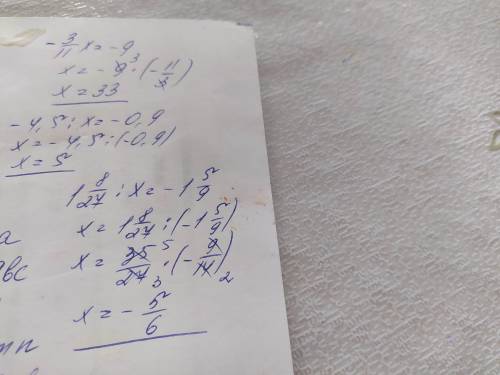 -3/11 x = -9
x = -9 3 · (-11/3)
x = 33
-4,5 : x = -0,9
x = -4,5 : (-0,9)
x = 5
1 8/27 : x = -1 5/9
x = 1 8/27 : (-1 5/9)
x = 35 5/27 3 · (-9/14 2)
x = -5/6